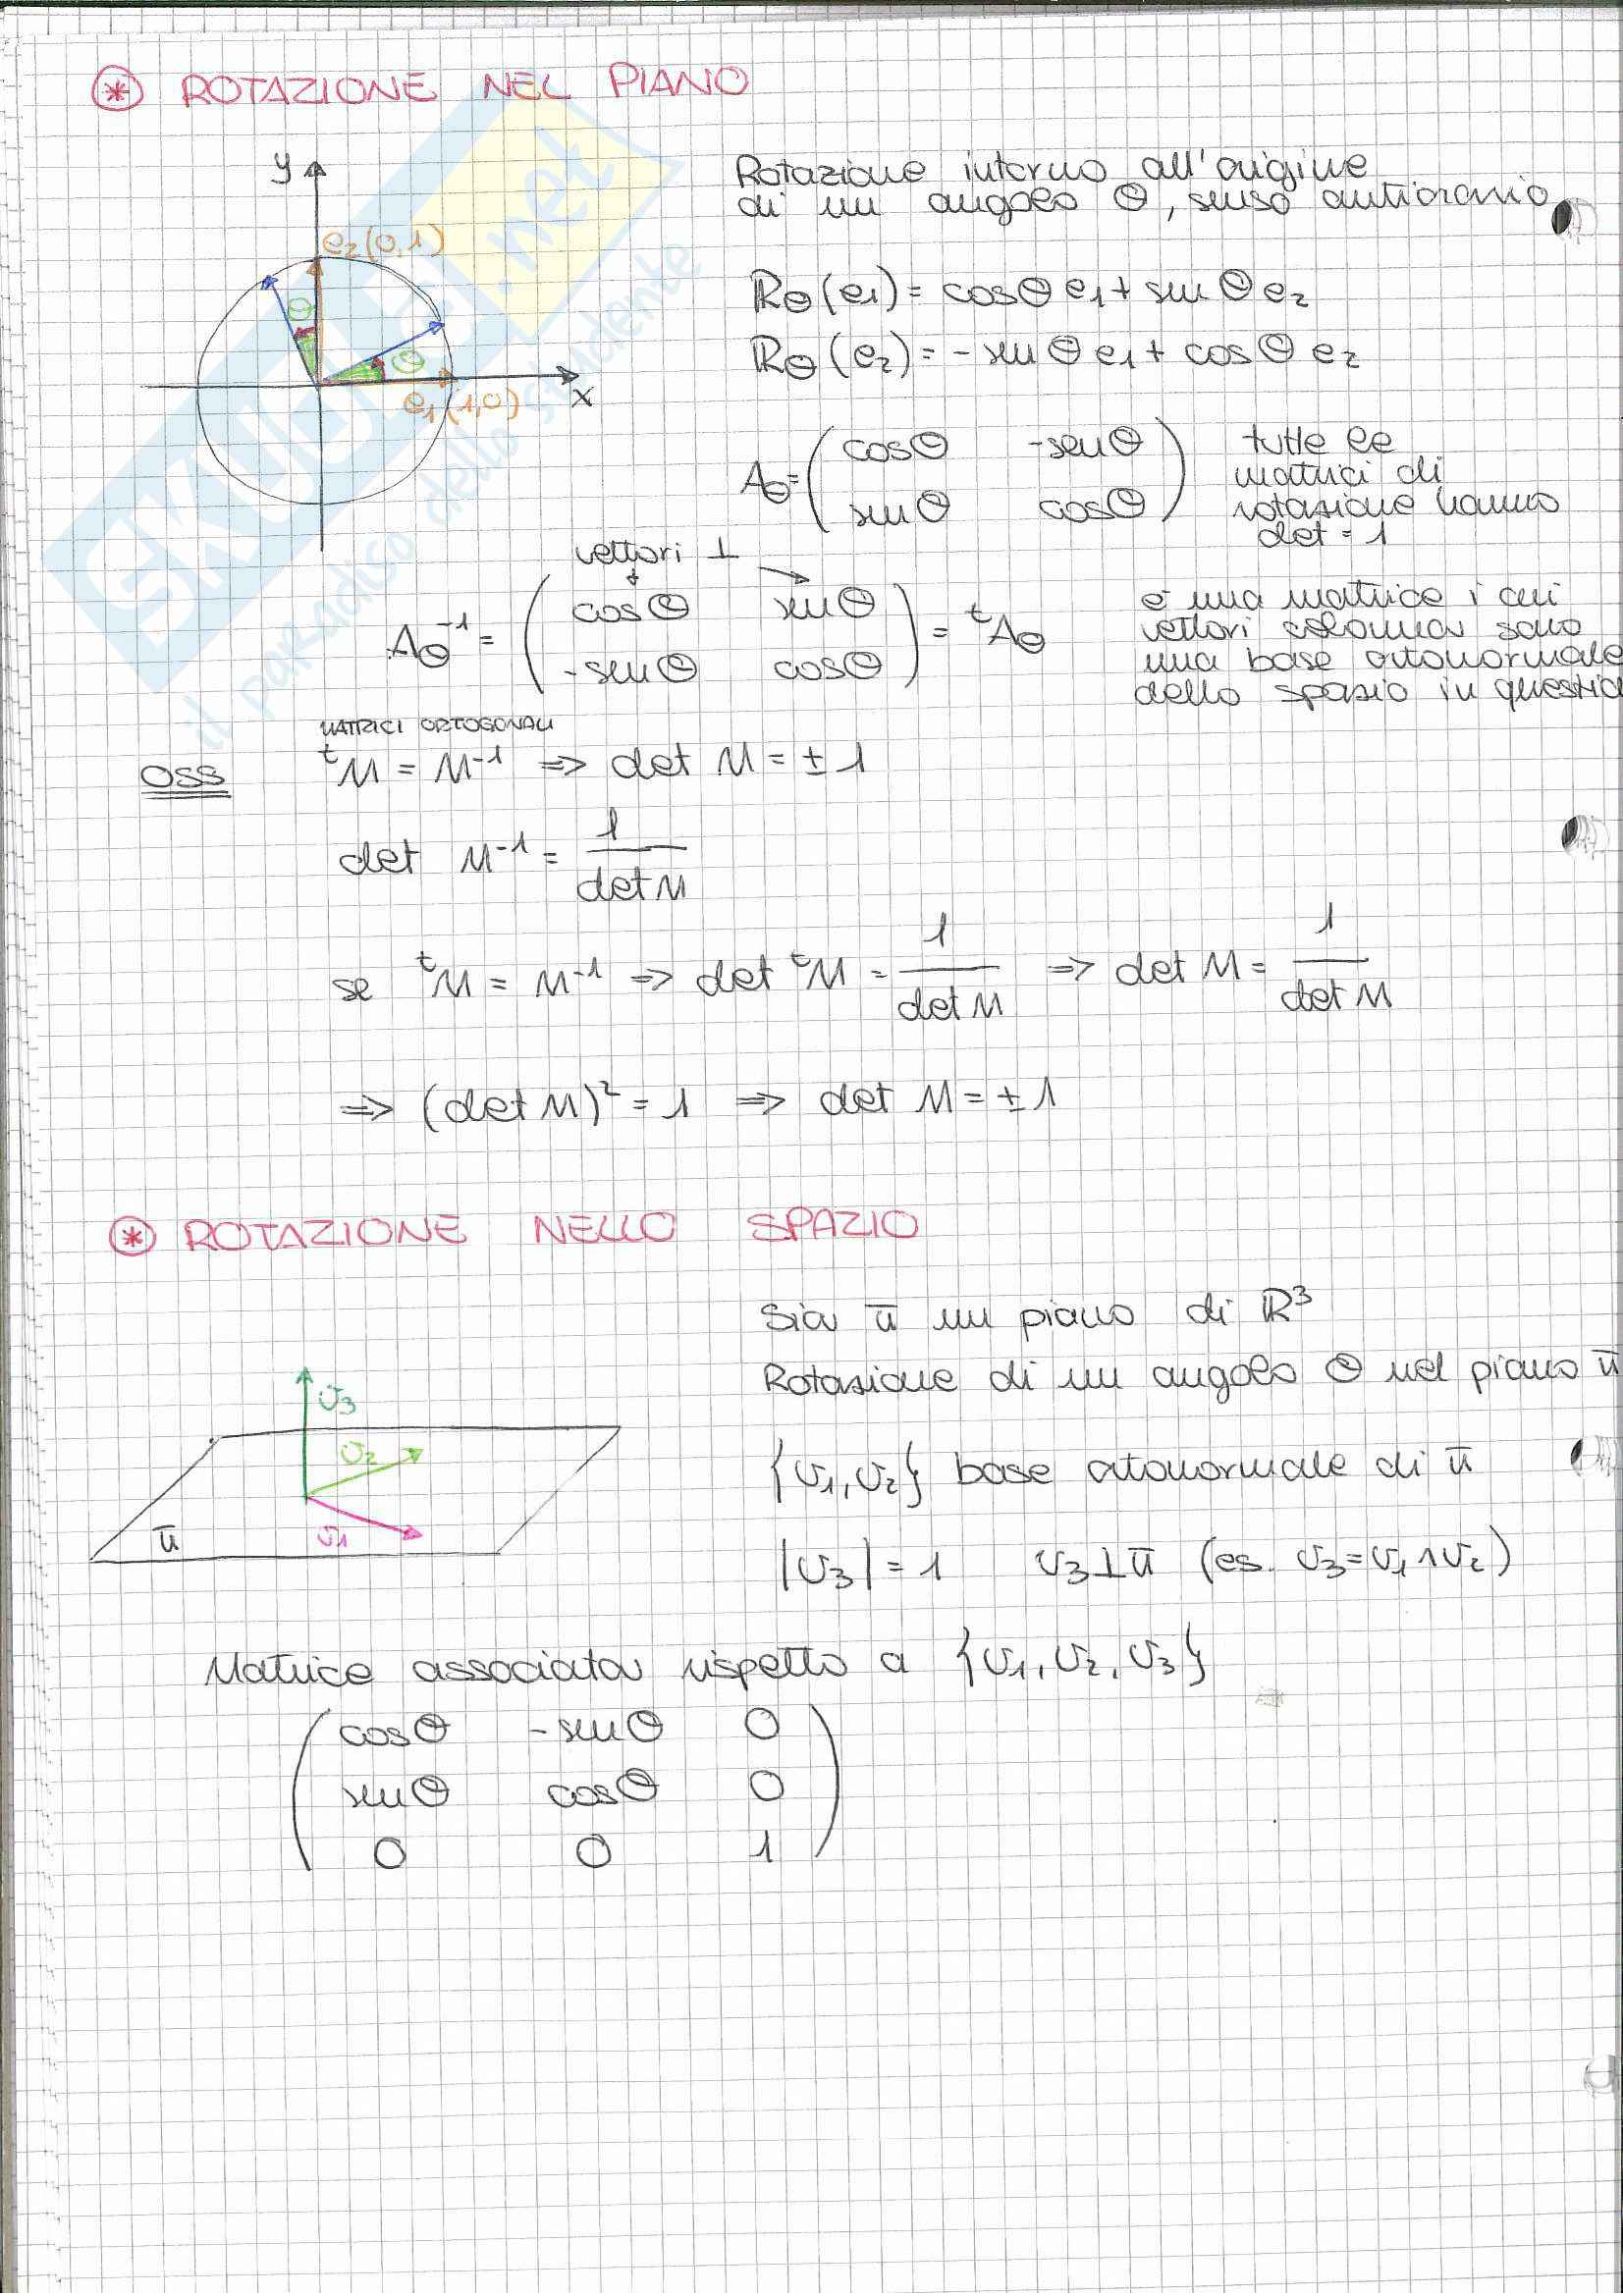 * ROTAZIONE NEL PIANO
y
e2(0,1)
θ
θ
e1(1,0)
x
Rotazione intorno all'origine
di un angolo θ, senso antiorario
Rθ(e1) = cosθ e1 + senθ e2
Rθ(e2) = -senθ e1 + cosθ e2
Aθ = ( cosθ -senθ
senθ cosθ )
tutte le
matrici di
rotazione hanno
det = 1
vettori ⊥
Aθ⁻¹ = ( cosθ senθ
-senθ cosθ ) = ᵗAθ
è una matrice i cui
vettori colonna sono
una base ortonormale
dello spazio in
MATRICI ORTOGONALI
OSS ᵗM = M⁻¹ => det M = ± 1
det M⁻¹ = 1 / det M
se ᵗM = M⁻¹ => det ᵗM = 1 / det M => det M = 1 / det M
=> (det M)² = 1 => det M = ± 1
* ROTAZIONE NELLO SPAZIO
Sia π un piano di R³
Rotazione di un angolo θ nel piano π
v3
v2
v1
π
{v1, v2} base ortonormale di π
|v3| = 1 v3 ⊥ π (es. v3 = v1 ∧ v2)
Matrice associata rispetto a {v1, v2, v3}
( cosθ -senθ 0
senθ cosθ 0
0 0 1 )
SKUOLA.net
il paradiso dello studente